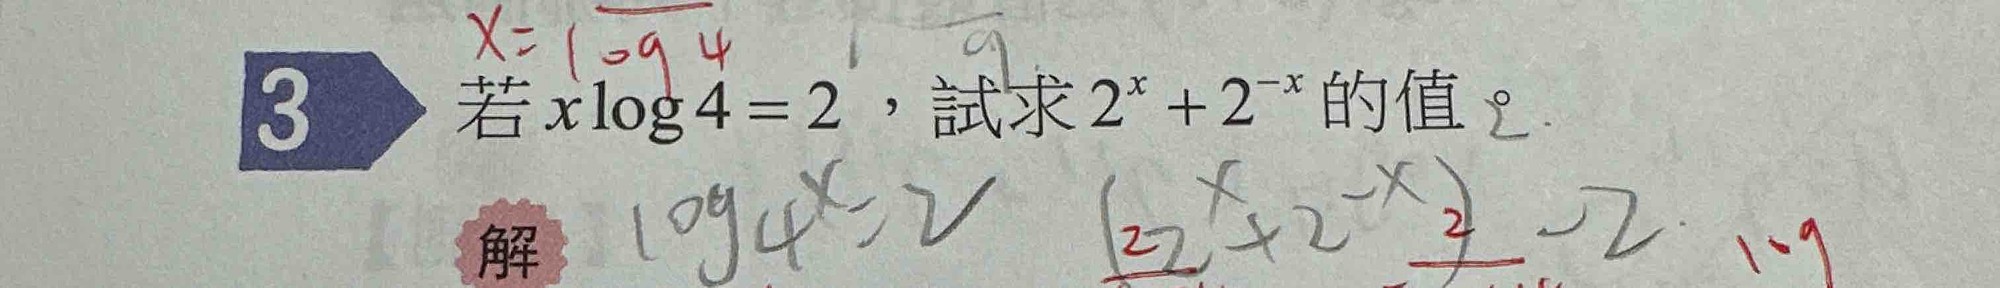 x = log 4
3 若 x log 4 = 2，試求 2^x + 2^{-x} 的值。
解 log 4^x = 2 (2^x + 2^{-x})^2 - 2
log